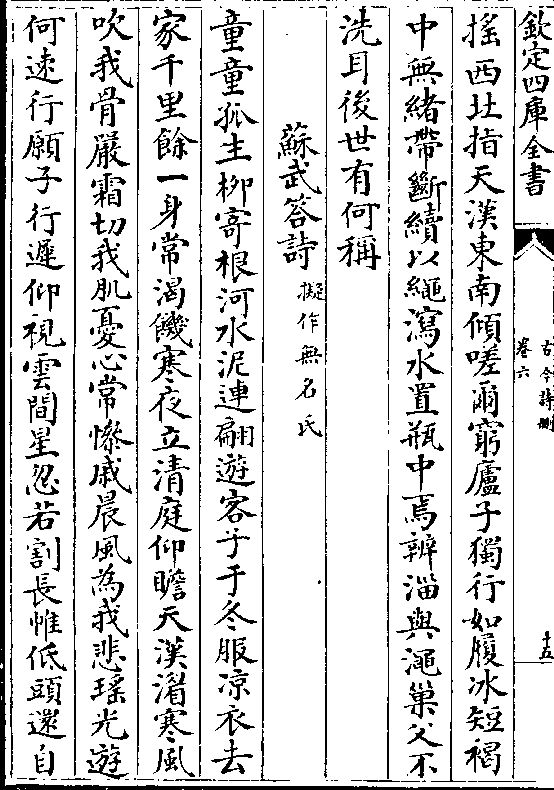 欽定四庫全書
卷六
古今詩刪
十五
搖西北指天漢東南傾嗟爾窮廬子獨行如履冰短褐
中無緒帶斷續以繩瀉水置瓶中焉辨淄與澠巢父不
洗耳後世有何稱
蘇武答詩擬作無名氏
童童孤生柳寄根河水泥連翩遊客子于冬服凉衣去
家千里餘一身常渴饑寒夜立清庭仰瞻天漢湄寒風
吹我骨嚴霜切我肌憂心常慘戚晨風為我悲瑤光遊
何速行願子行遲仰視雲間星忽若割長帷低頭還自